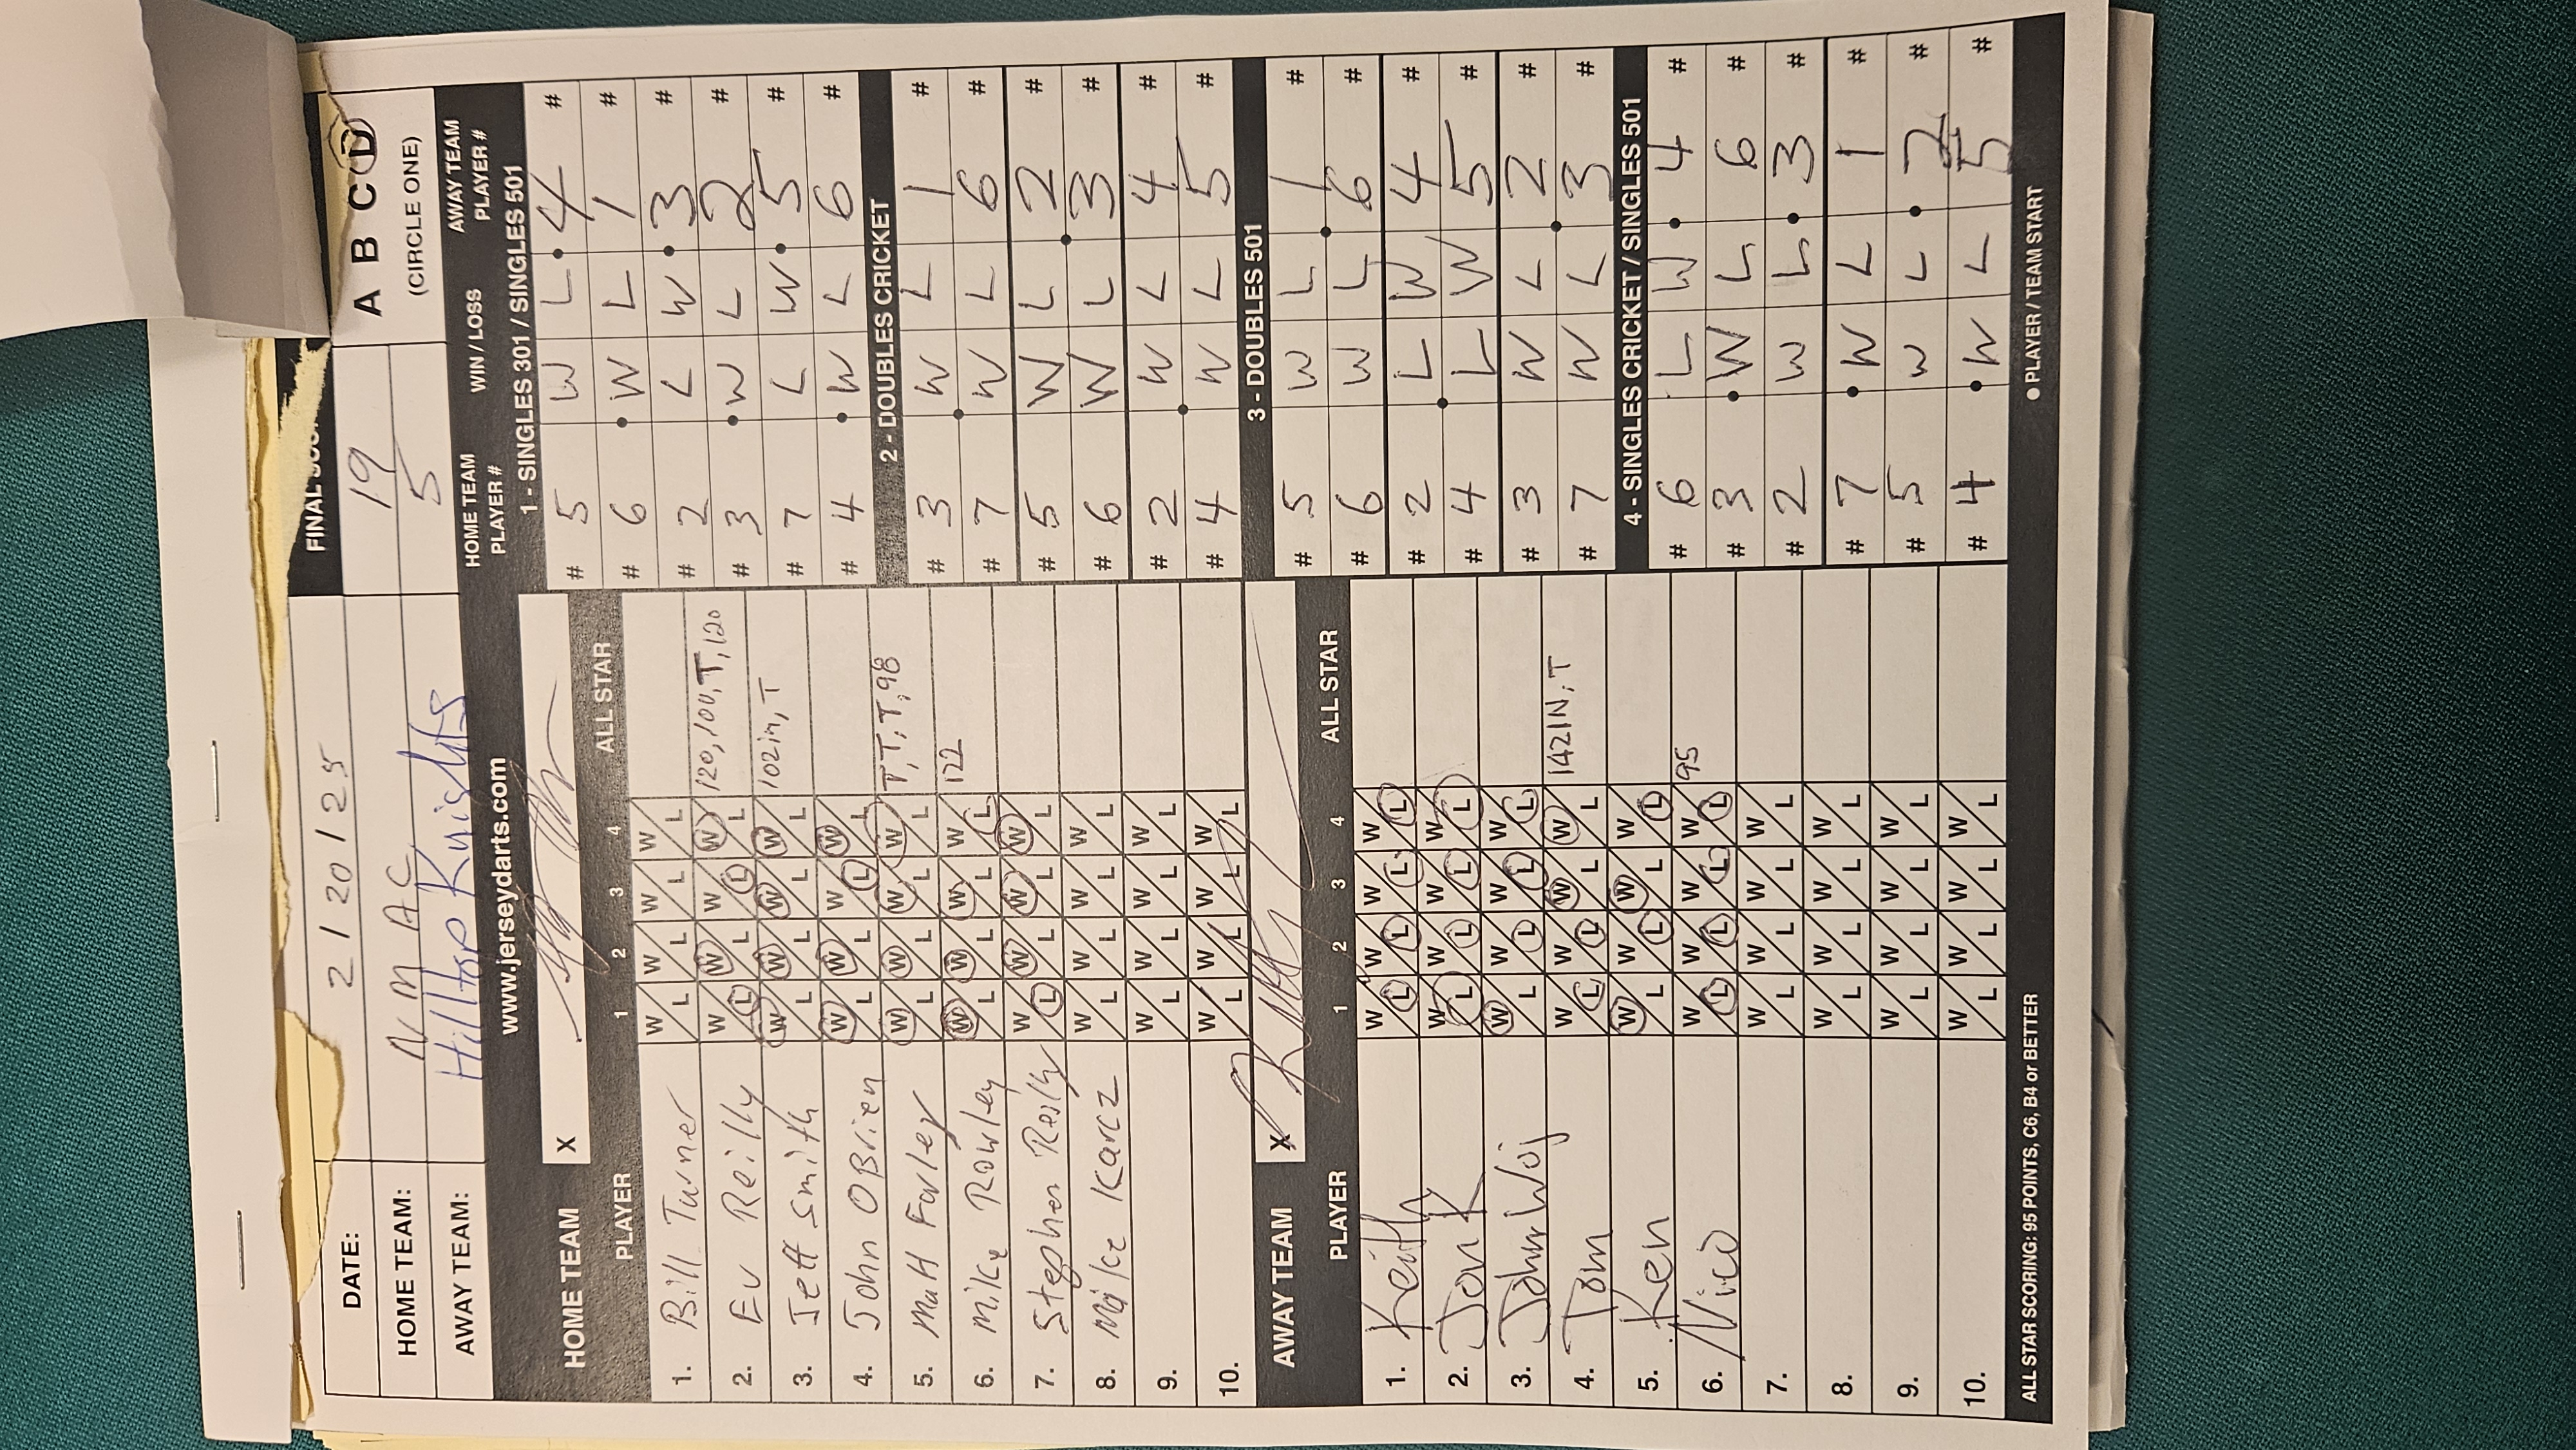 FINAL SCO
DATE: 2/20/25
A B C D
(CIRCLE ONE)
HOME TEAM: NMAC 19
AWAY TEAM: Hilltop Knights 5
www.jerseydarts.com
HOME TEAM X
PLAYER 1 2 3 4 ALL STAR
1. Bill Turner W L W L W L W L
2. Ev Reilly W L W L W L W L 120, 100, T, 120
3. Jeff Smith W L W L W L W L 102in, T
4. John OBrien W L W L W L W L
5. Matt Farley W L W L W L W L T, T, T, 98
6. Mike Rowley W L W L W L W L 122
7. Stephen Reilly W L W L W L W L
8. Mike Karcz W L W L W L W L
9. W L W L W L W L
10. W L W L W L W L
AWAY TEAM X
PLAYER 1 2 3 4 ALL STAR
1. Keith W L W L W L W L
2. Jon K W L W L W L W L
3. John Woj W L W L W L W L
4. Tom W L W L W L W L 142IN, T
5. Ken W L W L W L W L
6. Nico W L W L W L W L 95
7. W L W L W L W L
8. W L W L W L W L
9. W L W L W L W L
10. W L W L W L W L
ALL STAR SCORING: 95 POINTS, C6, B4 or BETTER
HOME TEAM PLAYER # WIN / LOSS AWAY TEAM PLAYER #
1 - SINGLES 301 / SINGLES 501
# 5 W L 4 #
# 6 W L 1 #
# 2 L W 3 #
# 3 W L 2 #
# 7 L W 5 #
# 4 W L 6 #
2 - DOUBLES CRICKET
# 3 W L 1 #
# 7 W L 6 #
# 5 W L 2 #
# 6 W L 3 #
# 2 W L 4 #
# 4 W L 5 #
3 - DOUBLES 501
# 5 W L 1 #
# 6 W L 6 #
# 2 L W 4 #
# 4 L W 5 #
# 3 W L 2 #
# 7 W L 3 #
4 - SINGLES CRICKET / SINGLES 501
# 6 L W 4 #
# 3 W L 6 #
# 2 W L 3 #
# 7 W L 1 #
# 5 W L 2 #
# 4 W L 5 #
● PLAYER / TEAM START